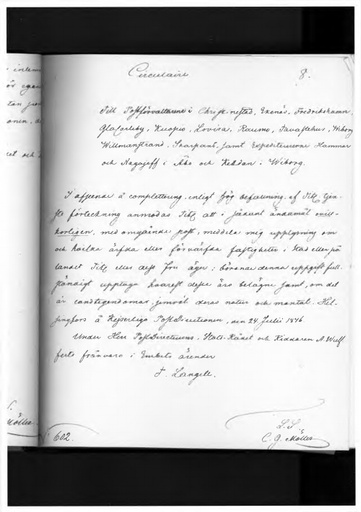 Circulaire
8.
Till Postförvaltarne i Christinestad, Ekenäs, Fredrikshamn,
Gla Carleby, Kuopio, Lovisa, Raumo, Tavastehus, Wiborg
Willmanstrand, samt Expeditionerne Hammar
och Nagajeff i Åbo och Wiborg.
I afseende å complettering, enligt hög befallning, af Titz Tjen-
ste förteckning anmodas Titz att i jäknat ändamål
med omgående post, meddela mig upplysning om
och hvilka ärfda eller förvärfda fastigheter i Stad eller på
landet Titz eller dess Fru äger, börande denna uppgift full-
ständigt upptaga hvarest desse äro belägne samt, om det
är landtegendomar jemväl deras natur och mantal. Hel-
singfors å Kejserliga PostDirectionen, den 24 Julii 1846.
Under Herr PostDirecteurens, Stats-Rådet och Riddaren A Wulf-
ferts frånvaro i Embets ärender
F Langell.
602.
L.S.
C. G. Möller